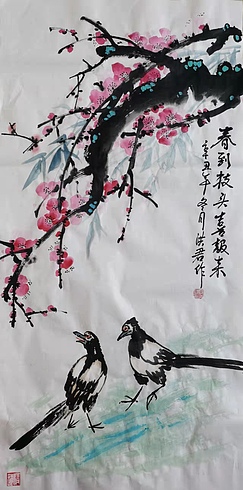 春到枝头喜报来
辛丑年冬月洪君作